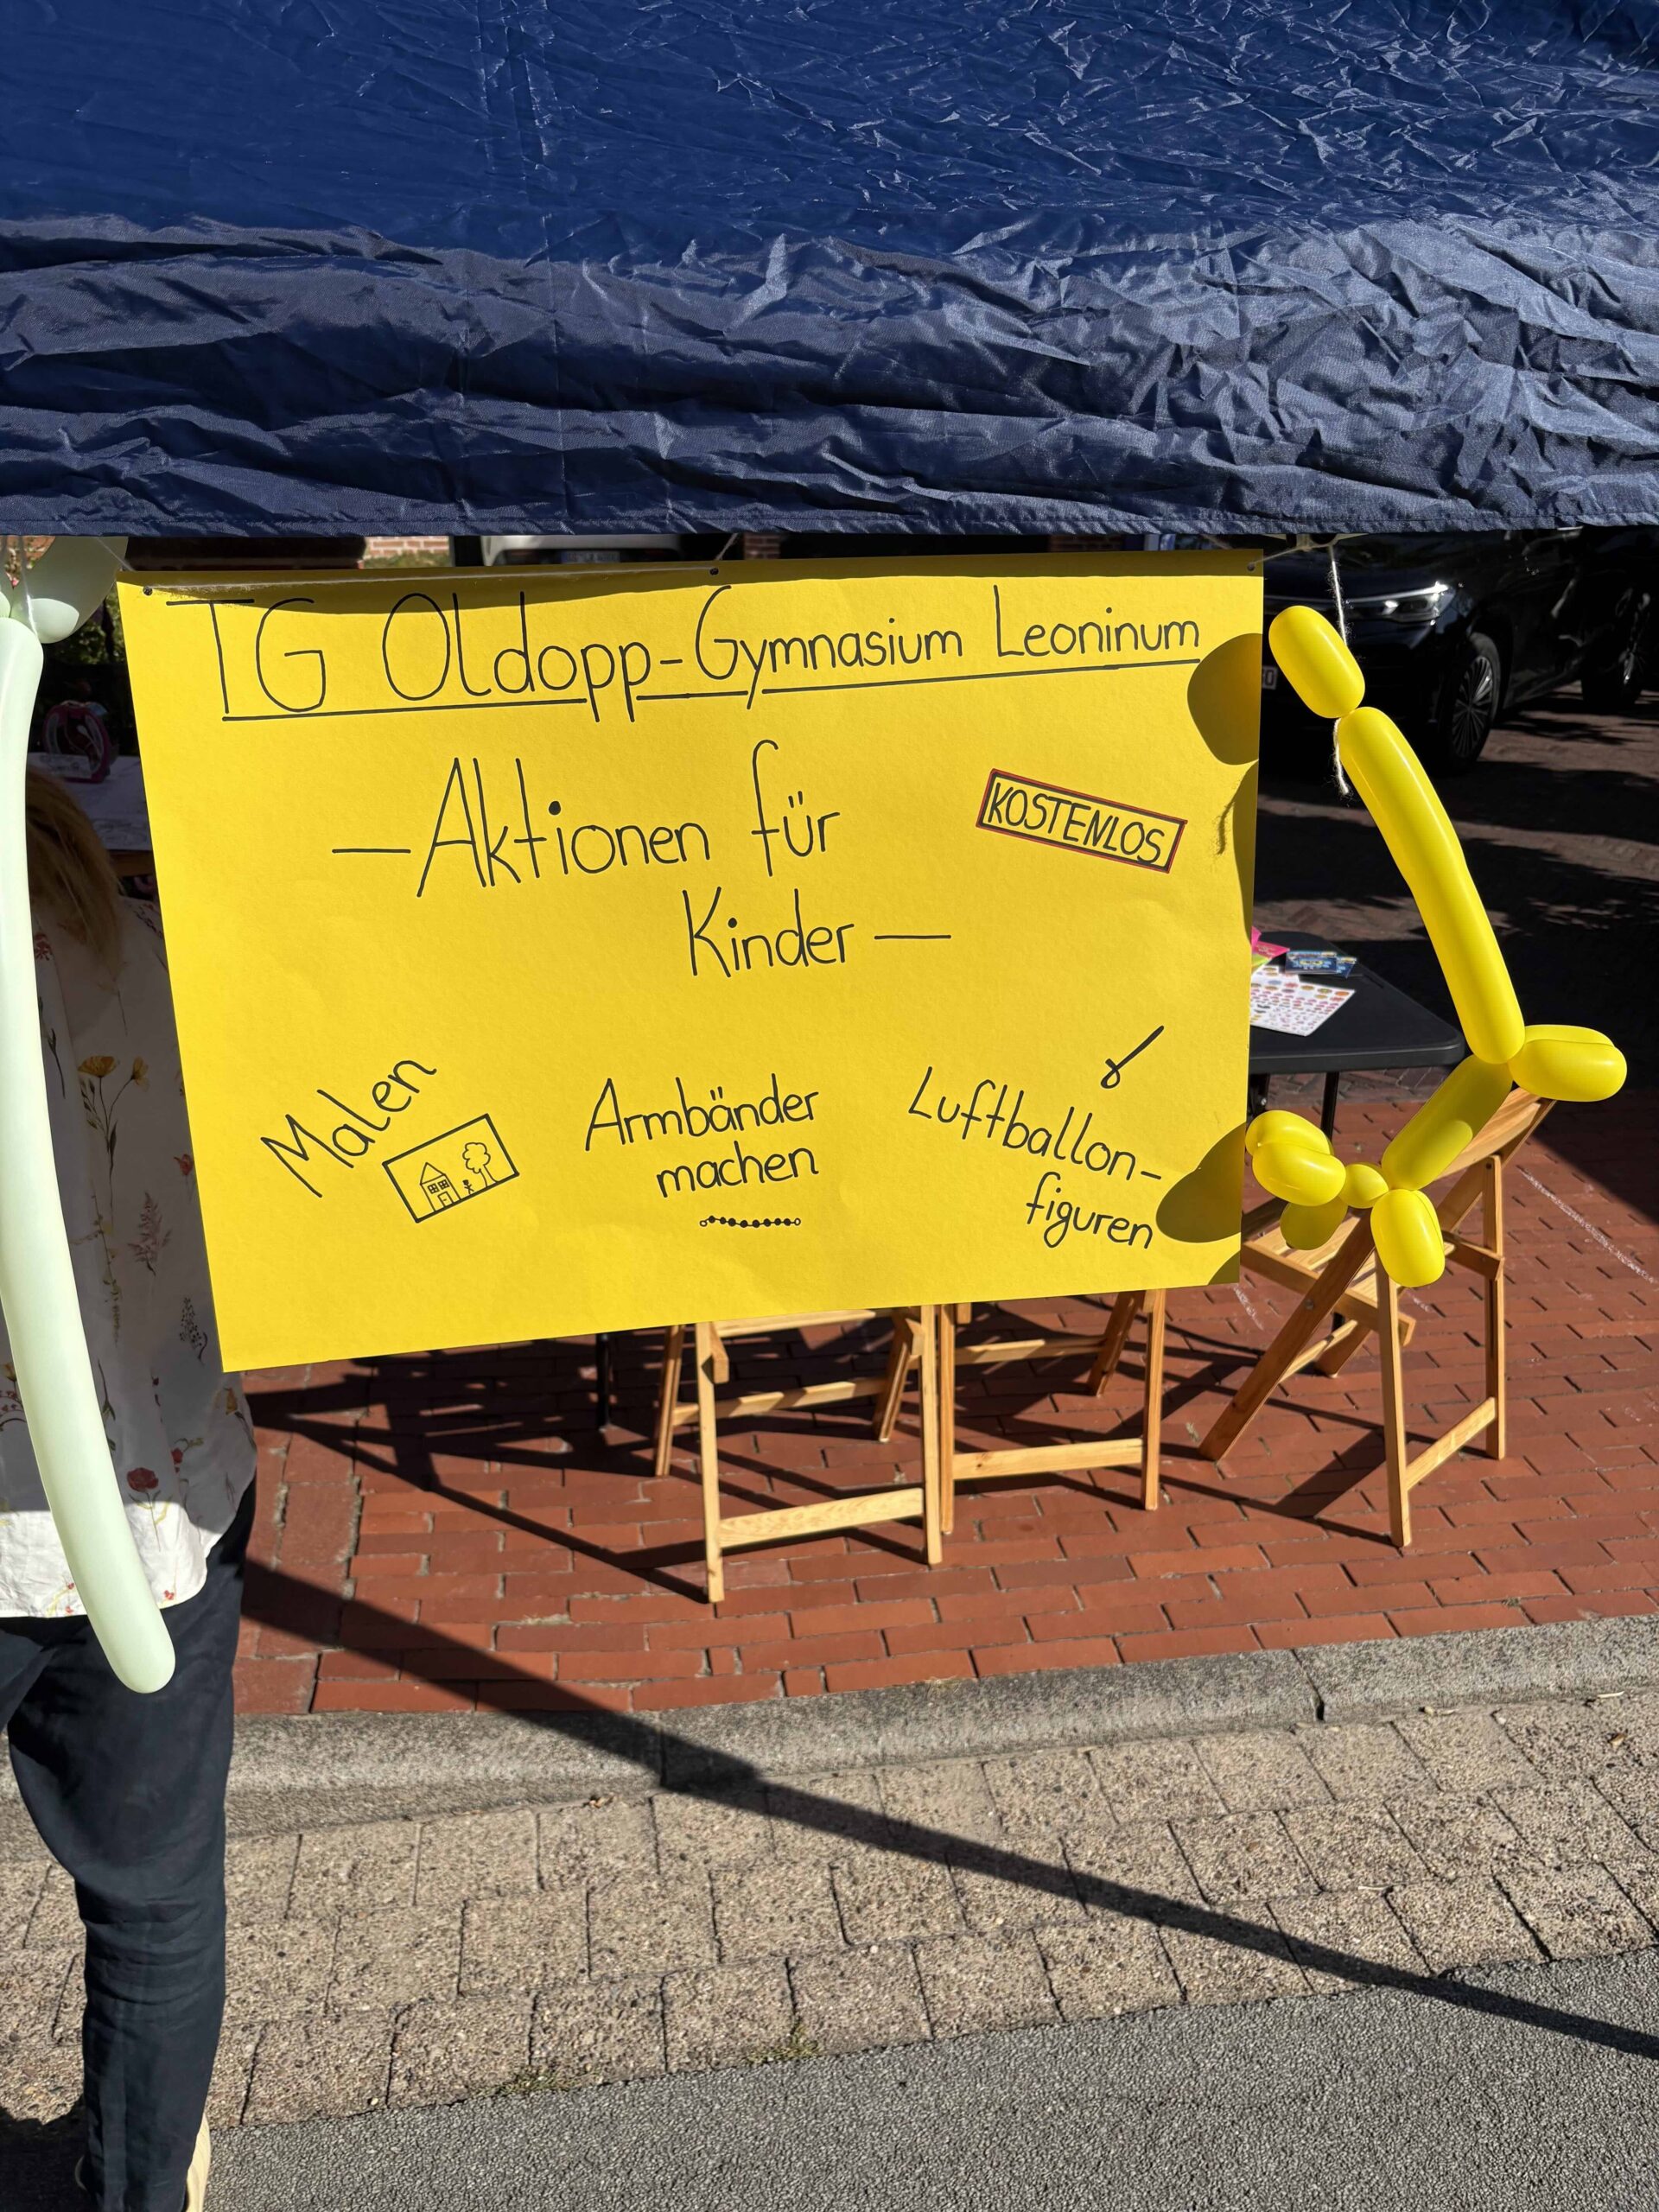 TG Oldopp-Gymnasium Leoninum
—Aktionen für
Kinder—
KOSTENLOS
Malen
Armbänder
machen
Luftballon-
figuren